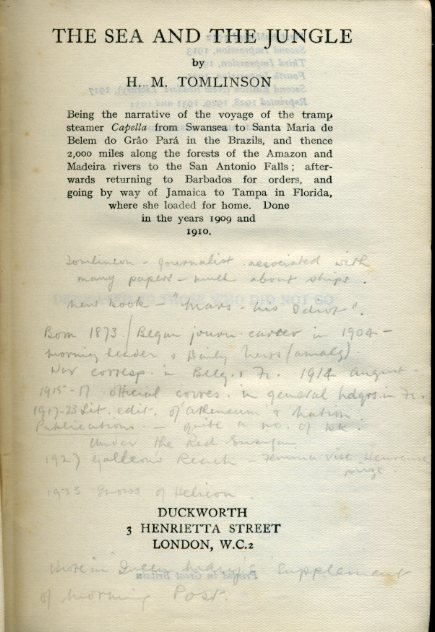 THE SEA AND THE JUNGLE
by
H. M. TOMLINSON
Being the narrative of the voyage of the tramp
steamer Capella from Swansea to Santa Maria de
Belem do Grão Pará in the Brazils, and thence
2,000 miles along the forests of the Amazon and
Madeira rivers to the San Antonio Falls; after-
wards returning to Barbados for orders, and
going by way of Jamaica to Tampa in Florida,
where she loaded for home. Done
in the years 1909 and
1910.
Tomlinson - journalist associated with
many papers - much about ships.
new book - "Mars - his Idiot".
Born 1873 / Began journ. career in 1904 -
morning leader & Daily News (amalg)
War corresp. in Belg. & Fr. 1914 August -
1915-17 official corres. in general hdqrs. in Fr.
1917-23 Lit. edit. of Atheneum & Nation.
Publications - quite a no. of wks.
Under the Red Ensign
1927 Galleons Reach - Femina Vie Heureuse
prize
1935 of Helicon.
DUCKWORTH
3 HENRIETTA STREET
LONDON, W.C.2
in Supplement
of Morning Post.
Printed in Great Britain